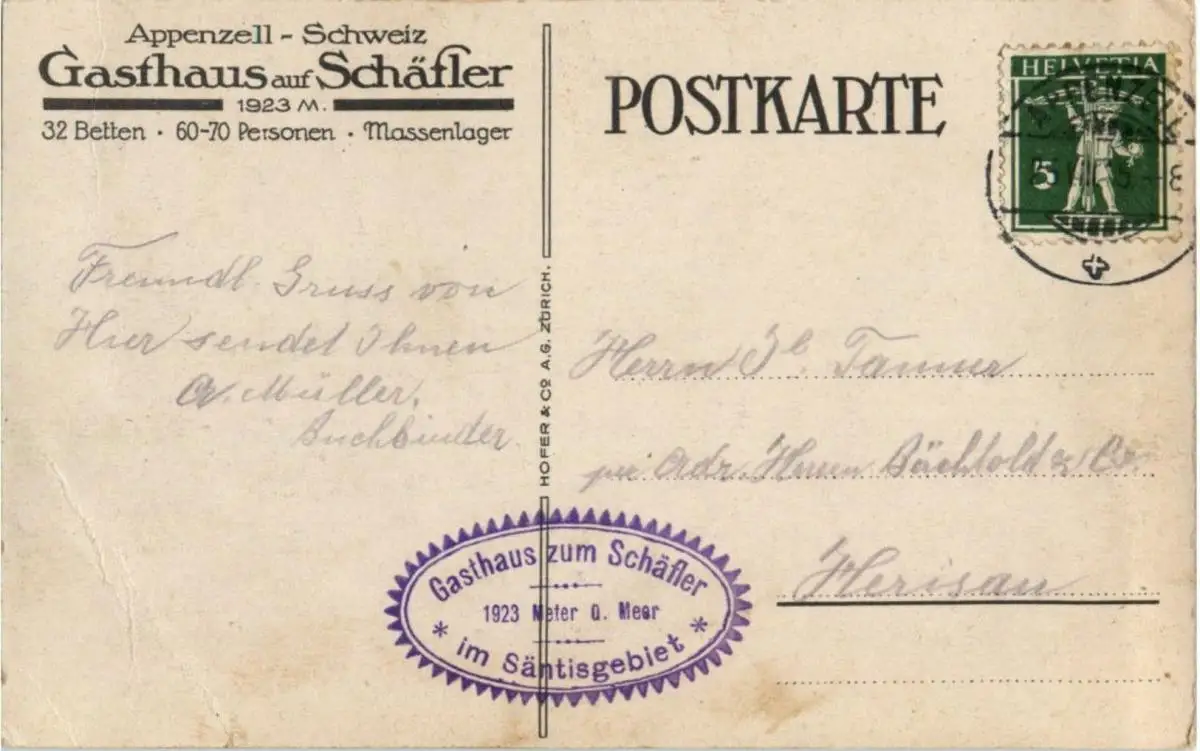 Appenzell - Schweiz
Gasthaus auf Schäfler
1923 M.
32 Betten · 60-70 Personen · Massenlager
POSTKARTE
HELVETIA
5
APPENZELL
Freundl. Gruss von
Hier sendet Ihnen
A. Müller,
Buchbinder
HOFER & CO A.G. ZÜRICH.
Herrn Tanner
per Adr. Herren Bächtold & Co
Herisau
Gasthaus zum Schäfler
1923 Meter ü. Meer
* im Säntisgebiet *